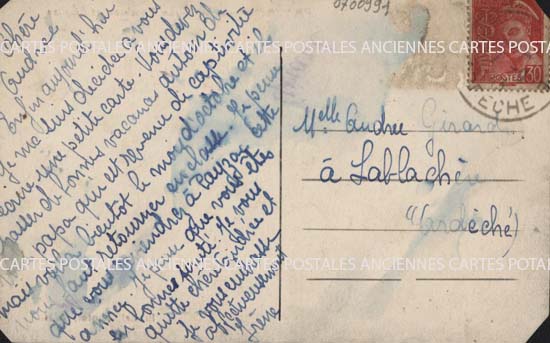 0700991
Chère
Andrée
Enfin aujourd'hui
je me suis décidée à vous
écrire une petite carte. Vous devez
passer de bonnes vacances autour de
votre papa qui est revenu et
mais voici bientôt le mois d'octobre et il
vous faut retourner en classe. Je pense
que vous à Lauzac cette
année. J'espère que vous êtes
en bonne santé. Je vous
quitte chère Andrée et
je vous embrasse
affectueusement
POSTES
30
ECHE
Melle Andrée Girard
à Lablachère
(Ardèche)
CARTES POSTALES ANCIENNES CARTES POSTALES ANCIENNES CARTES POSTALES ANCIENNES
CARTES POSTALES ANCIENNES CARTES POSTALES ANCIENNES CARTES POSTALES ANCIENNES